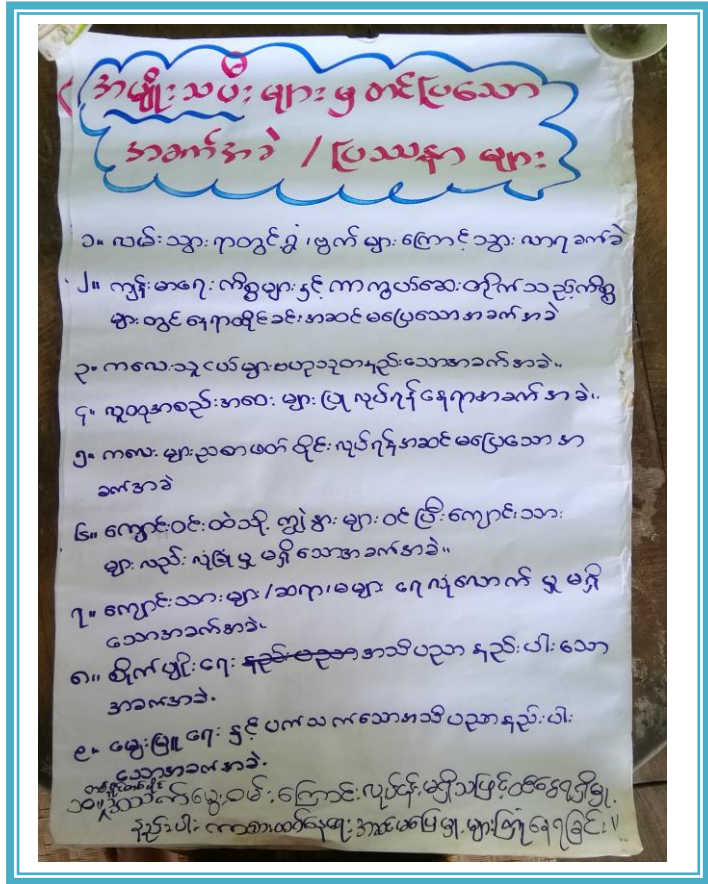 အမျိုးသမီးများမှ တင်ပြသော
အခက်အခဲ / ပြဿနာ များ
၁။ လမ်းသွားရာတွင် ရွှံ့၊ ဗွက် များကြောင့် သွားလာရခက်ခဲ
၂။ ကျန်းမာရေး ကိစ္စများနှင့် ကာကွယ်ဆေးတိုက်သည့်ကိစ္စ
များတွင် နေရာထိုင်ခင်းအဆင်မပြေသောအခက်အခဲ
၃။ ကလေးသူငယ်များဗဟုသုတနည်းသောအခက်အခဲ။
၄။ လူထုအစည်းအဝေး များပြုလုပ်ရန်နေရာအခက်အခဲ။
၅။ ကလေးများညစာဖတ် ဝိုင်းလုပ်ရန်အဆင်မပြေသော အ
ခက်အခဲ
၆။ ကျောင်းဝင်းထဲသို့ ကျွဲနွားများ ဝင်ပြီးကျောင်းသား
များလည်း လုံခြုံမှု မရှိသောအခက်အခဲ။
၇။ ကျောင်းသားများ/ဆရာ၊မများ ရေလုံလောက်မှု မရှိ
သောအခက်အခဲ။
၈။ စိုက်ပျိုးရေး နည်းပညာ အသိပညာ နည်းပါးသော
အခက်အခဲ။
၉။ မွေးမြူရေး နှင့်ပက်သက်သောအသိပညာနည်းပါး
သောအခက်အခဲ။
၁၀။ အသက်မွေးဝမ်းကြောင်းလုပ်ငန်းမရှိသဖြင့်ဝင်ငွေရရှိမှု
နည်းပါး ကာစားဝတ်နေရေးအဆင်မပြေမှုများကြုံနေရခြင်း။